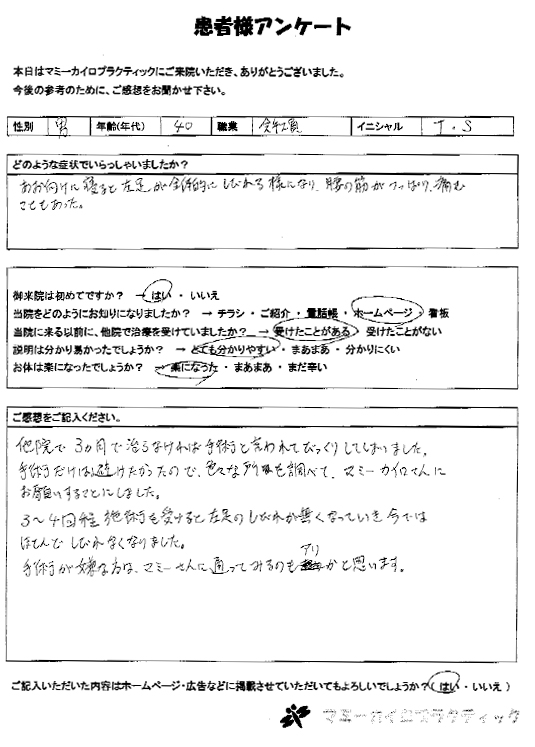 患者様アンケート
本日はマミーカイロプラクティックにご来院いただき、ありがとうございました。
今後の参考のために、ご感想をお聞かせ下さい。
性別 男 年齢(年代) 40 職業 イニシャル T.S
どのような症状でいらっしゃいましたか？
あお向けに寝ると左足が全体的にしびれる様になり、腰の筋がつっぱり、痛む
こともあった。
御来院は初めてですか？ →はい・いいえ
当院をどのようにお知りになりましたか？ →チラシ・ご紹介・電話帳・ホームページ・看板
当院に来る以前に、他院で治療を受けていましたか？ →受けたことがある・受けたことがない
説明は分かり易かったでしょうか？ →とても分かりやすい・まあまあ・分かりにくい
お体は楽になったでしょうか？ →楽になった・まあまあ・まだ辛い
ご感想をご記入ください。
他院で3ヵ月で治らなければ手術と言われてびっくりしてしまいました。
手術だけは避けたかったので、色々な所も調べて、マミーカイロさんに
お願いすることにしました。
3～4回程施術を受けると左足のしびれが無くなっていき今では
ほとんどしびれなくなりました。
手術が嫌な方は、マミーさんに通ってみるのもアリかと思います。
ご記入いただいた内容はホームページ・広告などに掲載させていただいてもよろしいでしょうか？（はい・いいえ）
マミーカイロプラクティック